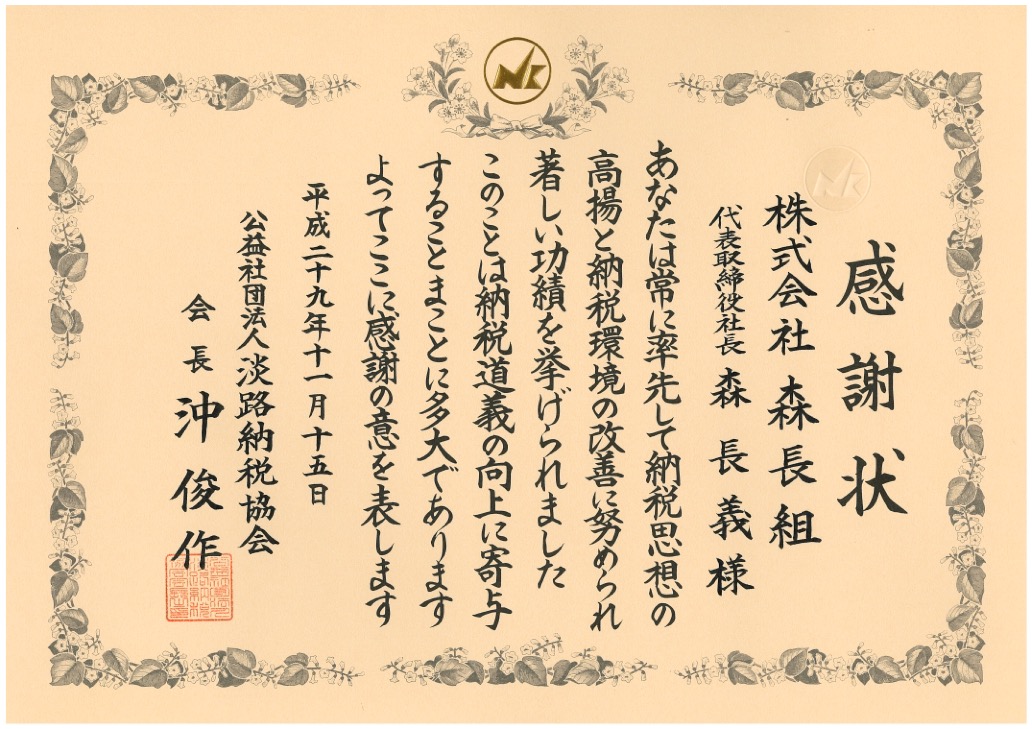 感謝状
株式会社 森長組
代表取締役社長 森 長 義 様
あなたは常に率先して納税思想の
高揚と納税環境の改善に努められ
著しい功績を挙げられました
このことは納税道義の向上に寄与
することまことに多大であります
よってここに感謝の意を表します
平成二十九年十一月十五日
公益社団法人 淡路納税協会
会長 沖 俊 作